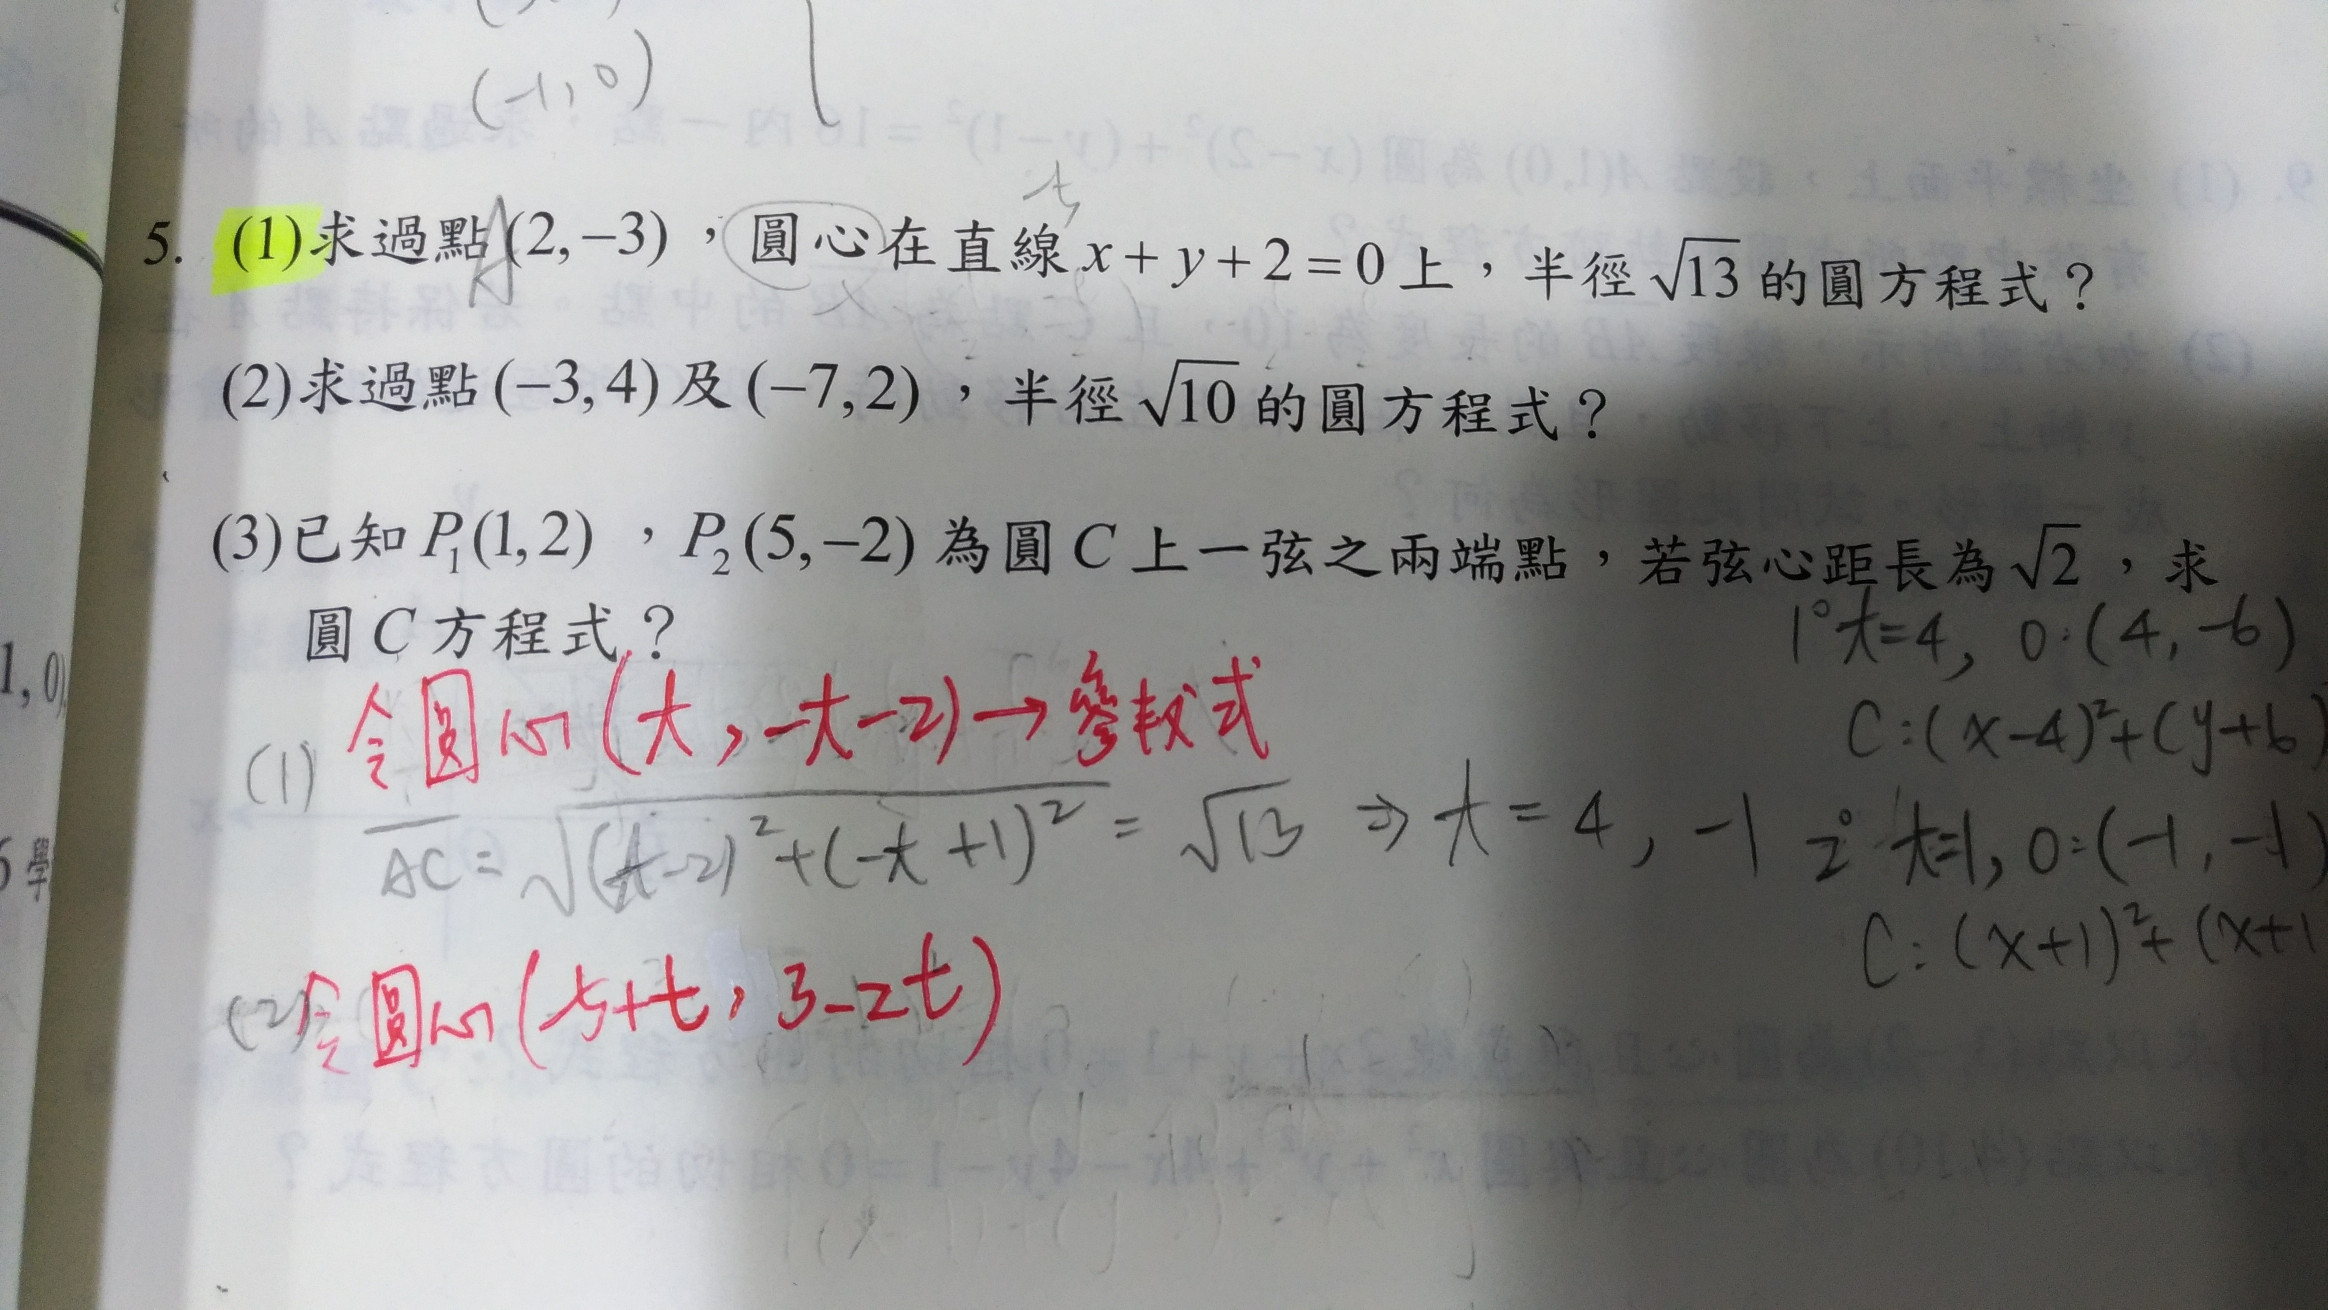 (-1,0)
5. (1)求過點(2,−3),圓心在直線 x+y+2=0上,半徑√13的圓方程式?
A
t
(2)求過點(−3,4)及(−7,2),半徑√10的圓方程式?
(3)已知P₁(1,2),P₂(5,−2)為圓C上一弦之兩端點,若弦心距長為√2,求
圓C方程式?
1° t=4, O:(4,-6)
C:(x-4)²+(y+6)
(1) 令圓心(t,-t-2)→參數式
AC=√(t-2)²+(-t+1)²=√13 ⇒ t=4,-1
2° t=1, O:(-1,-1)
C:(x+1)²+(x+1
(2)令圓心(-5+t,3-2t)
1,0)
5 學